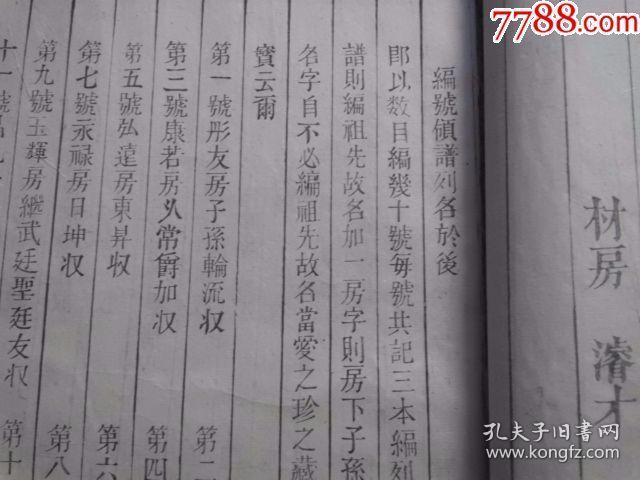 7788.com
中国收藏热线
材房 濬才
編號領譜列名於後
即以数目編幾十號每號共記三本編列
譜則編祖先故名加一房字則房下子孫
名字自不必編祖先故名當愛之珍之藏
寳云爾
第一號彤友房子孫輪流収 第二
第三號康若房乆常爵加収 第四
第五號弘遠房東昇収 第六
第七號永禄房日坤収 第八
第九號玉輝房繼武廷聖廷友収 第十
十一號
孔夫子旧书网
kongfz.com